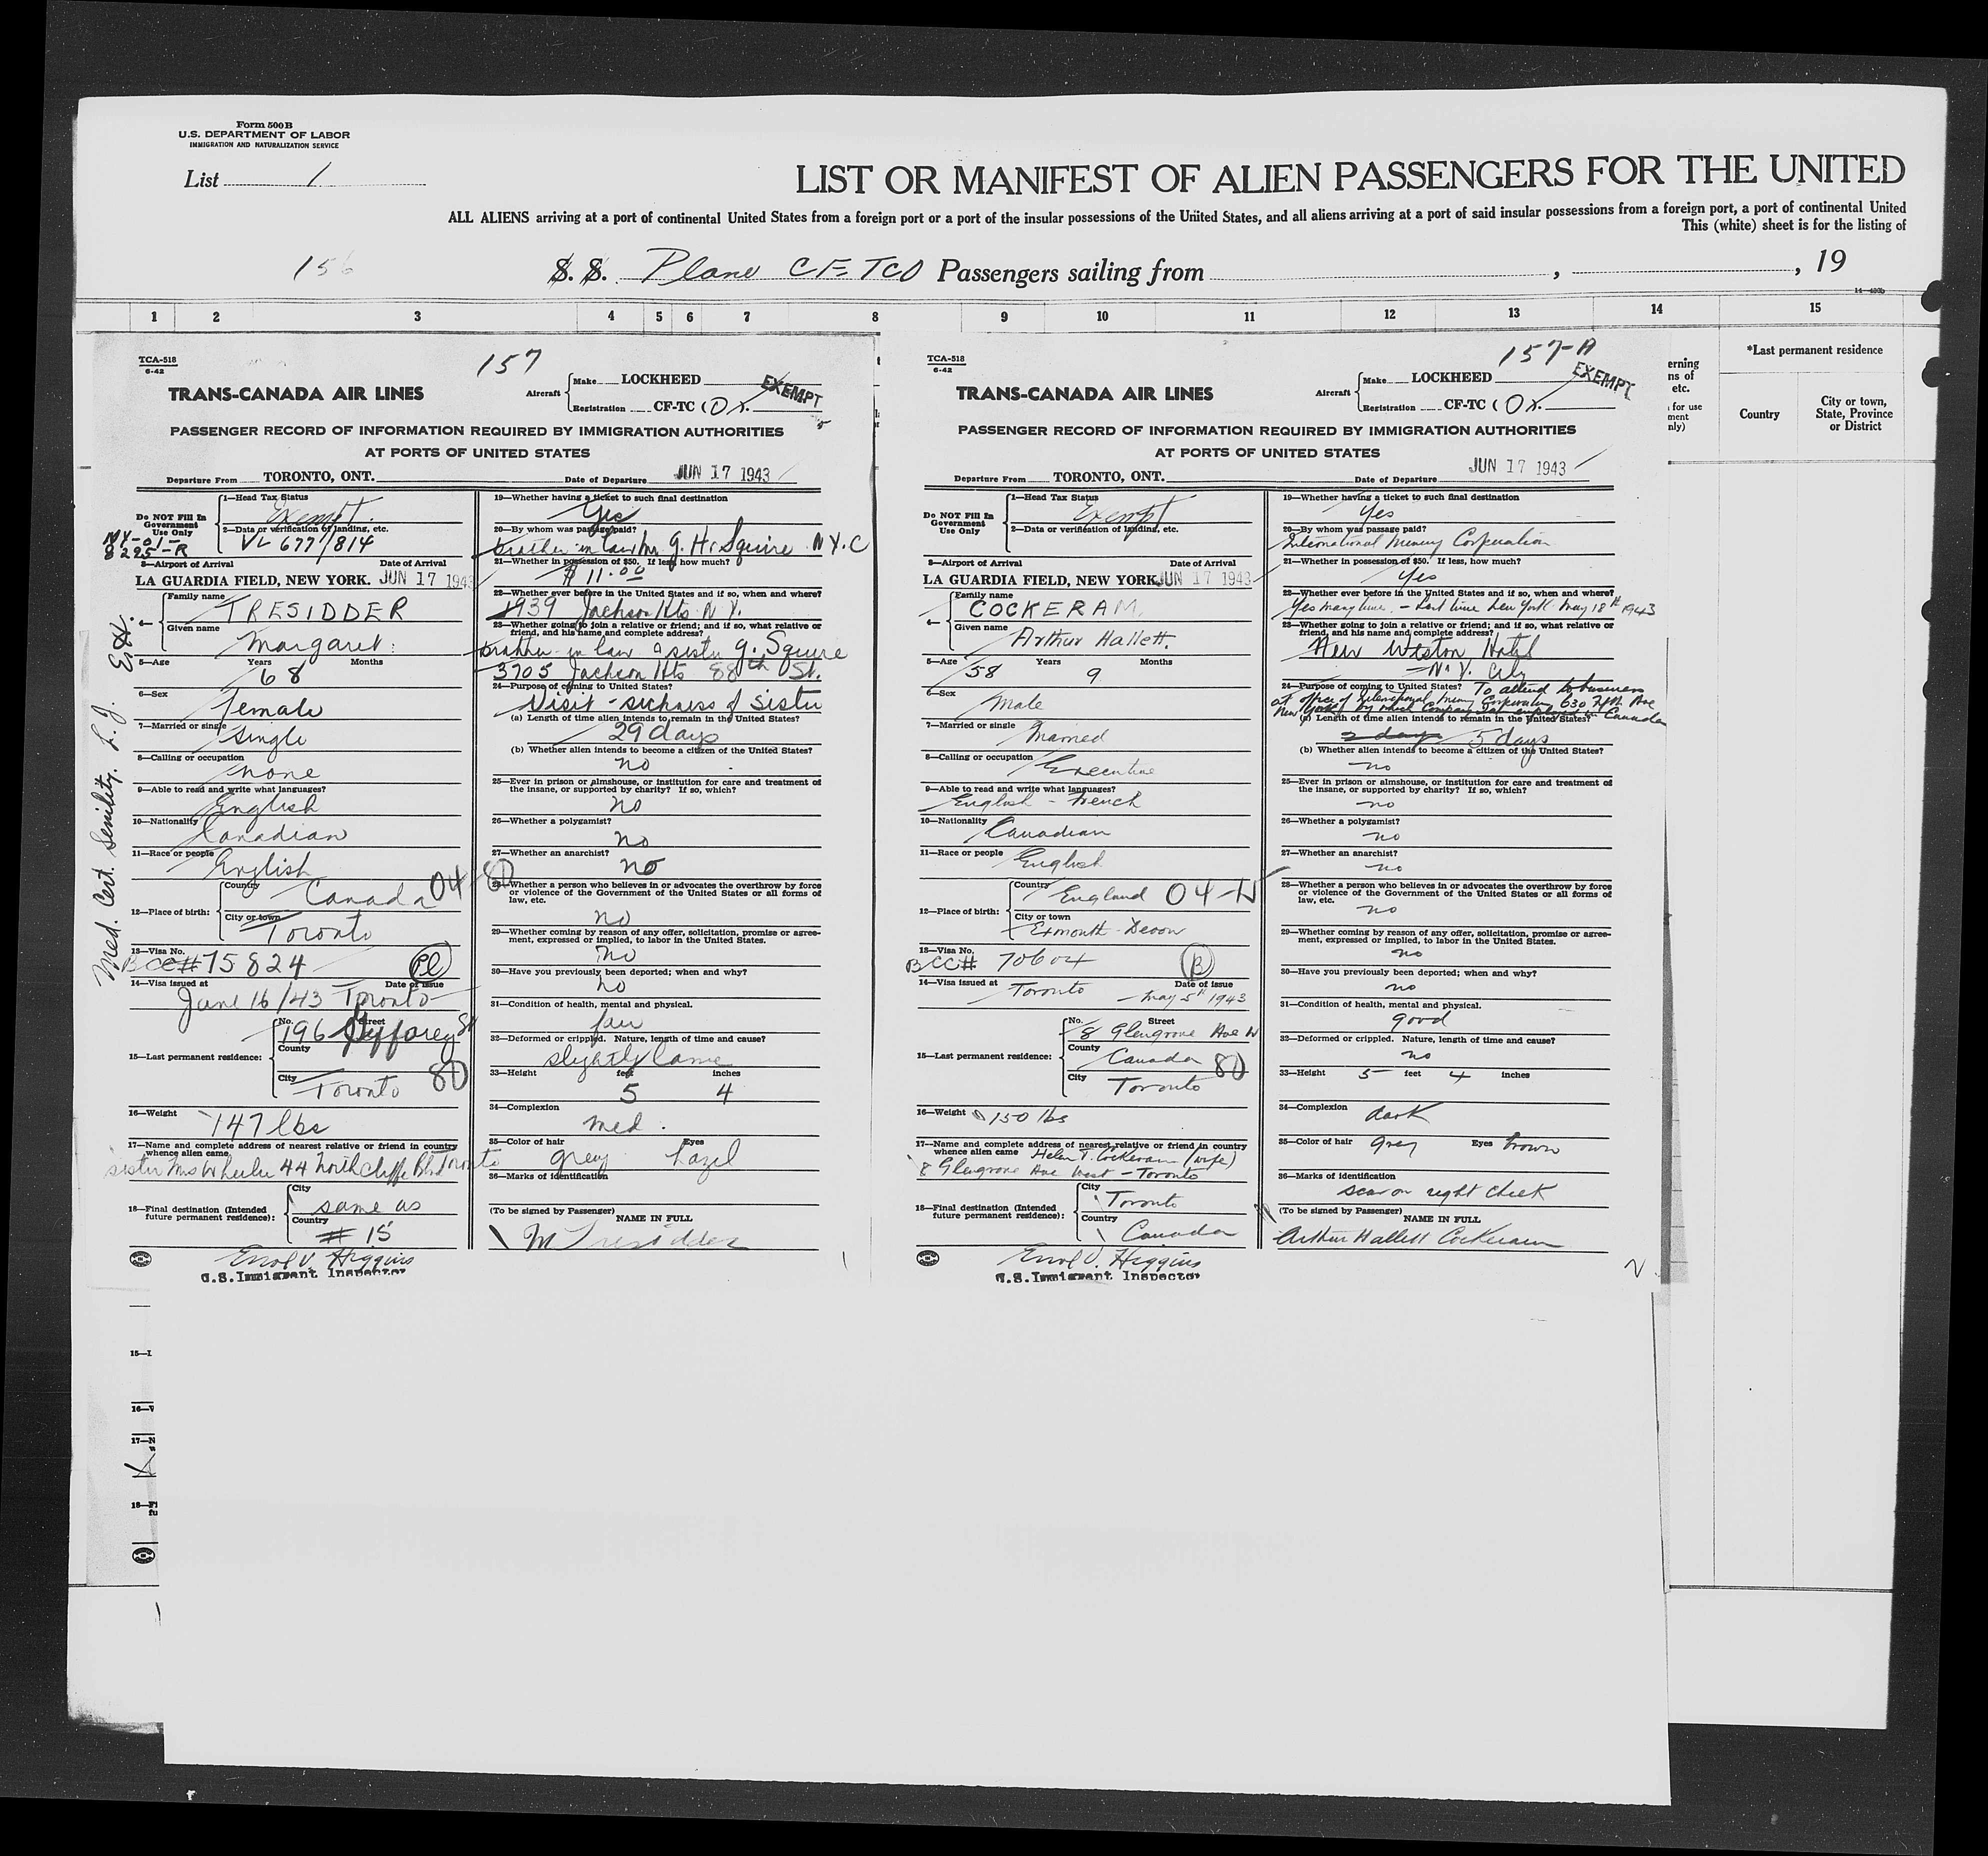 Form 500B
U.S. DEPARTMENT OF LABOR
IMMIGRATION AND NATURALIZATION SERVICE
List 1
LIST OR MANIFEST OF ALIEN PASSENGERS FOR THE UNITED
ALL ALIENS arriving at a port of continental United States from a foreign port or a port of the insular possessions of the United States, and all aliens arriving at a port of said insular possessions from a foreign port, a port of continental United
This (white) sheet is for the listing of
156
S. S. Plane CF-TCO Passengers sailing from , , 19
1 2 3 4 5 6 7 8 9 10 11 12 13 14 15
157
TCA-518
6-42
TRANS-CANADA AIR LINES
Aircraft
Make LOCKHEED
Registration CF-TC (O).
EXEMPT
PASSENGER RECORD OF INFORMATION REQUIRED BY IMMIGRATION AUTHORITIES
AT PORTS OF UNITED STATES
Departure From TORONTO, ONT. Date of Departure JUN 17 1943
Do NOT Fill In
Government
Use Only
1—Head Tax Status
Exempt.
2—Data or verification of landing, etc.
VL 677/814
NY-01-
8295-R
3—Airport of Arrival Date of Arrival
LA GUARDIA FIELD, NEW YORK. JUN 17 1943
4—
Family name
TRESIDDER
Given name
Margaret
5—Age Years Months
68
6—Sex
female
7—Married or single
single
8—Calling or occupation
none
9—Able to read and write what languages?
English
10—Nationality
Canadian
11—Race or people
English
12—Place of birth:
Country
Canada 04-80
City or town
Toronto
13—Visa No.
BCC# 75824
14—Visa issued at Date of issue
June 16/43 Toronto
15—Last permanent residence:
No. Street
196 St
County
City
Toronto 80
16—Weight
147 lbs
17—Name and complete address of nearest relative or friend in country
whence alien came
sister Mrs Wheeler 44 Northcliffe Blvd Toronto
18—Final destination (Intended
future permanent residence):
City
same as
Country
# 15
Errol V. Higgins
U.S. Immigrant Inspector
Med. Cert. Senility. L. J. Ext.
19—Whether having a ticket to such final destination
Yes
20—By whom was passage paid?
brother in law Mr. G. H. Squire N.Y.C
21—Whether in possession of $50. If less, how much?
$11.00
22—Whether ever before in the United States and if so, when and where?
1939 Jackson Hts N.Y.
23—Whether going to join a relative or friend; and if so, what relative or
friend, and his name and complete address?
brother in law & sister G. Squire
3705 Jackson Hts 88th St.
24—Purpose of coming to United States?
Visit - sickness of sister
(a) Length of time alien intends to remain in the United States?
29 days
(b) Whether alien intends to become a citizen of the United States?
no
25—Ever in prison or almshouse, or institution for care and treatment of
the insane, or supported by charity? If so, which?
no
26—Whether a polygamist?
no
27—Whether an anarchist?
no
28—Whether a person who believes in or advocates the overthrow by force
or violence of the Government of the United States or all forms of
law, etc.
no
29—Whether coming by reason of any offer, solicitation, promise or agree-
ment, expressed or implied, to labor in the United States.
no
30—Have you previously been deported; when and why?
no
31—Condition of health, mental and physical.
fair
32—Deformed or crippled. Nature, length of time and cause?
slightly lame
33—Height feet inches
5 4
34—Complexion
med.
35—Color of hair Eyes
grey hazel
36—Marks of identification
(To be signed by Passenger)
NAME IN FULL
M Tresidder
157-A
TCA-518
6-42
TRANS-CANADA AIR LINES
Aircraft
Make LOCKHEED
Registration CF-TC (O).
EXEMPT
PASSENGER RECORD OF INFORMATION REQUIRED BY IMMIGRATION AUTHORITIES
AT PORTS OF UNITED STATES
Departure From TORONTO, ONT. Date of Departure JUN 17 1943
Do NOT Fill In
Government
Use Only
1—Head Tax Status
Exempt
2—Data or verification of landing, etc.
3—Airport of Arrival Date of Arrival
LA GUARDIA FIELD, NEW YORK JUN 17 1943
4—
Family name
COCKERAM
Given name
Arthur Hallett.
5—Age Years Months
58 9
6—Sex
Male
7—Married or single
Married
8—Calling or occupation
Executive
9—Able to read and write what languages?
English - French
10—Nationality
Canadian
11—Race or people
English
12—Place of birth:
Country
England 04-W
City or town
Exmouth Devon
13—Visa No.
BCC# 70604
14—Visa issued at Date of issue
Toronto May 5th 1943
15—Last permanent residence:
No. Street
8 Glengrove Ave W
County
Canada
City
Toronto 80
16—Weight
150 lbs
17—Name and complete address of nearest relative or friend in country
whence alien came Helen T. Cockeram (wife)
8 Glengrove Ave West - Toronto
18—Final destination (Intended
future permanent residence):
City
Toronto
Country
Canada
Errol V. Higgins
U.S. Immigrant Inspector
19—Whether having a ticket to such final destination
Yes
20—By whom was passage paid?
International Mining Corporation
21—Whether in possession of $50. If less, how much?
Yes
22—Whether ever before in the United States and if so, when and where?
Yes many times - Last time New York May 18th 1943
23—Whether going to join a relative or friend; and if so, what relative or
friend, and his name and complete address?
New Weston Hotel
N.Y. City
24—Purpose of coming to United States? To attend to business
at office of International Mining Corporation 630 Fifth Ave
New York by which Company I am employed in Canada
(a) Length of time alien intends to remain in the United States?
2 days 5 days
(b) Whether alien intends to become a citizen of the United States?
no
25—Ever in prison or almshouse, or institution for care and treatment of
the insane, or supported by charity? If so, which?
no
26—Whether a polygamist?
no
27—Whether an anarchist?
no
28—Whether a person who believes in or advocates the overthrow by force
or violence of the Government of the United States or all forms of
law, etc.
no
29—Whether coming by reason of any offer, solicitation, promise or agree-
ment, expressed or implied, to labor in the United States.
no
30—Have you previously been deported; when and why?
no
31—Condition of health, mental and physical.
good
32—Deformed or crippled. Nature, length of time and cause?
no
33—Height 5 feet 4 inches
34—Complexion
dark
35—Color of hair grey Eyes brown
36—Marks of identification
scar on right cheek
(To be signed by Passenger)
NAME IN FULL
Arthur Hallett Cockeram
erning
ns of
etc.
for use
ment
nly)
*Last permanent residence
Country
City or town,
State, Province
or District
15—L
16—W
17—N
18—Fi
fu